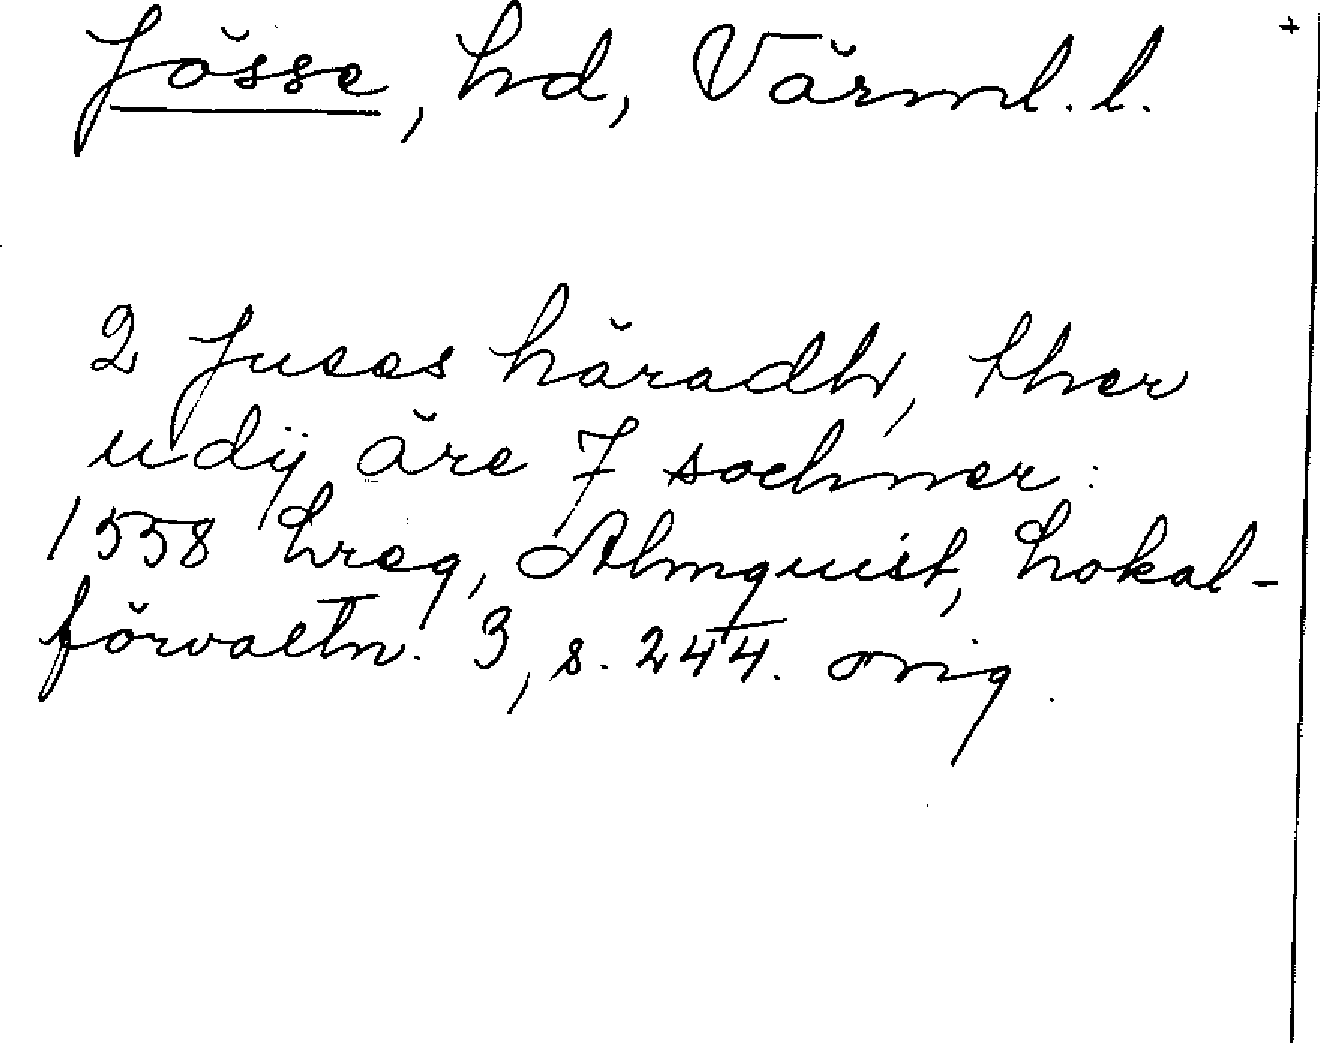 Jösse, hd, Värml. l. +
2 Juses häradh, ther
udij äre 7 sochner:
1558 hreg, Almquist, Lokal-
förvaltn. 3, s. 244. orig.